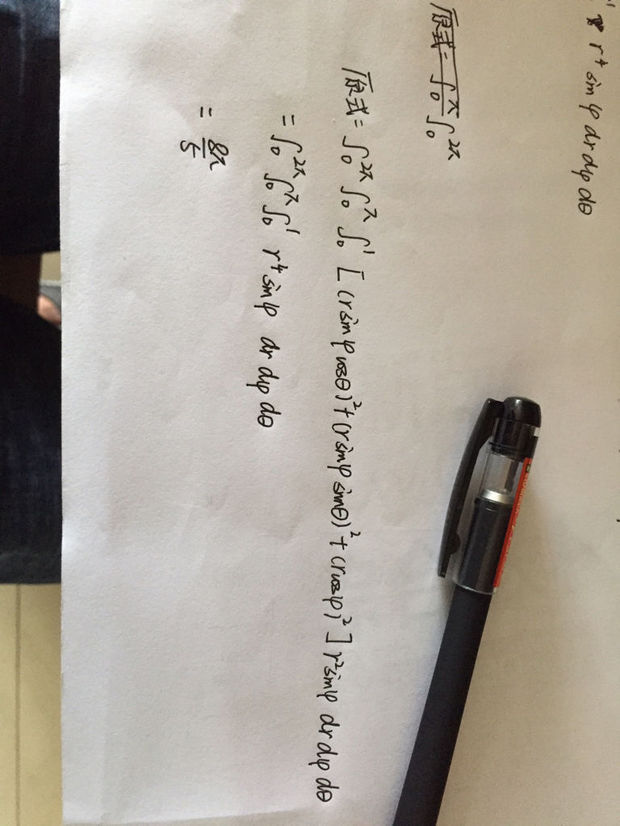 r⁴ sinφ dr dφ dθ
原式 = ∫₀^π ∫₀^2π
原式 = ∫₀^2π ∫₀^π ∫₀^1 [(r sinφ cosθ)² + (r sinφ sinθ)² + (r cosφ)²] r² sinφ dr dφ dθ
= ∫₀^2π ∫₀^π ∫₀^1 r⁴ sinφ dr dφ dθ
= 8π/5